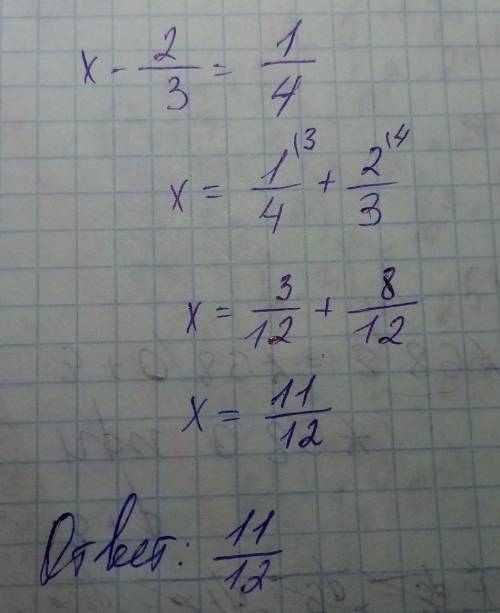 x - 2/3 = 1/4
x = 1/4⁽³ + 2/3⁽⁴
x = 3/12 + 8/12
x = 11/12
Ответ: 11/12